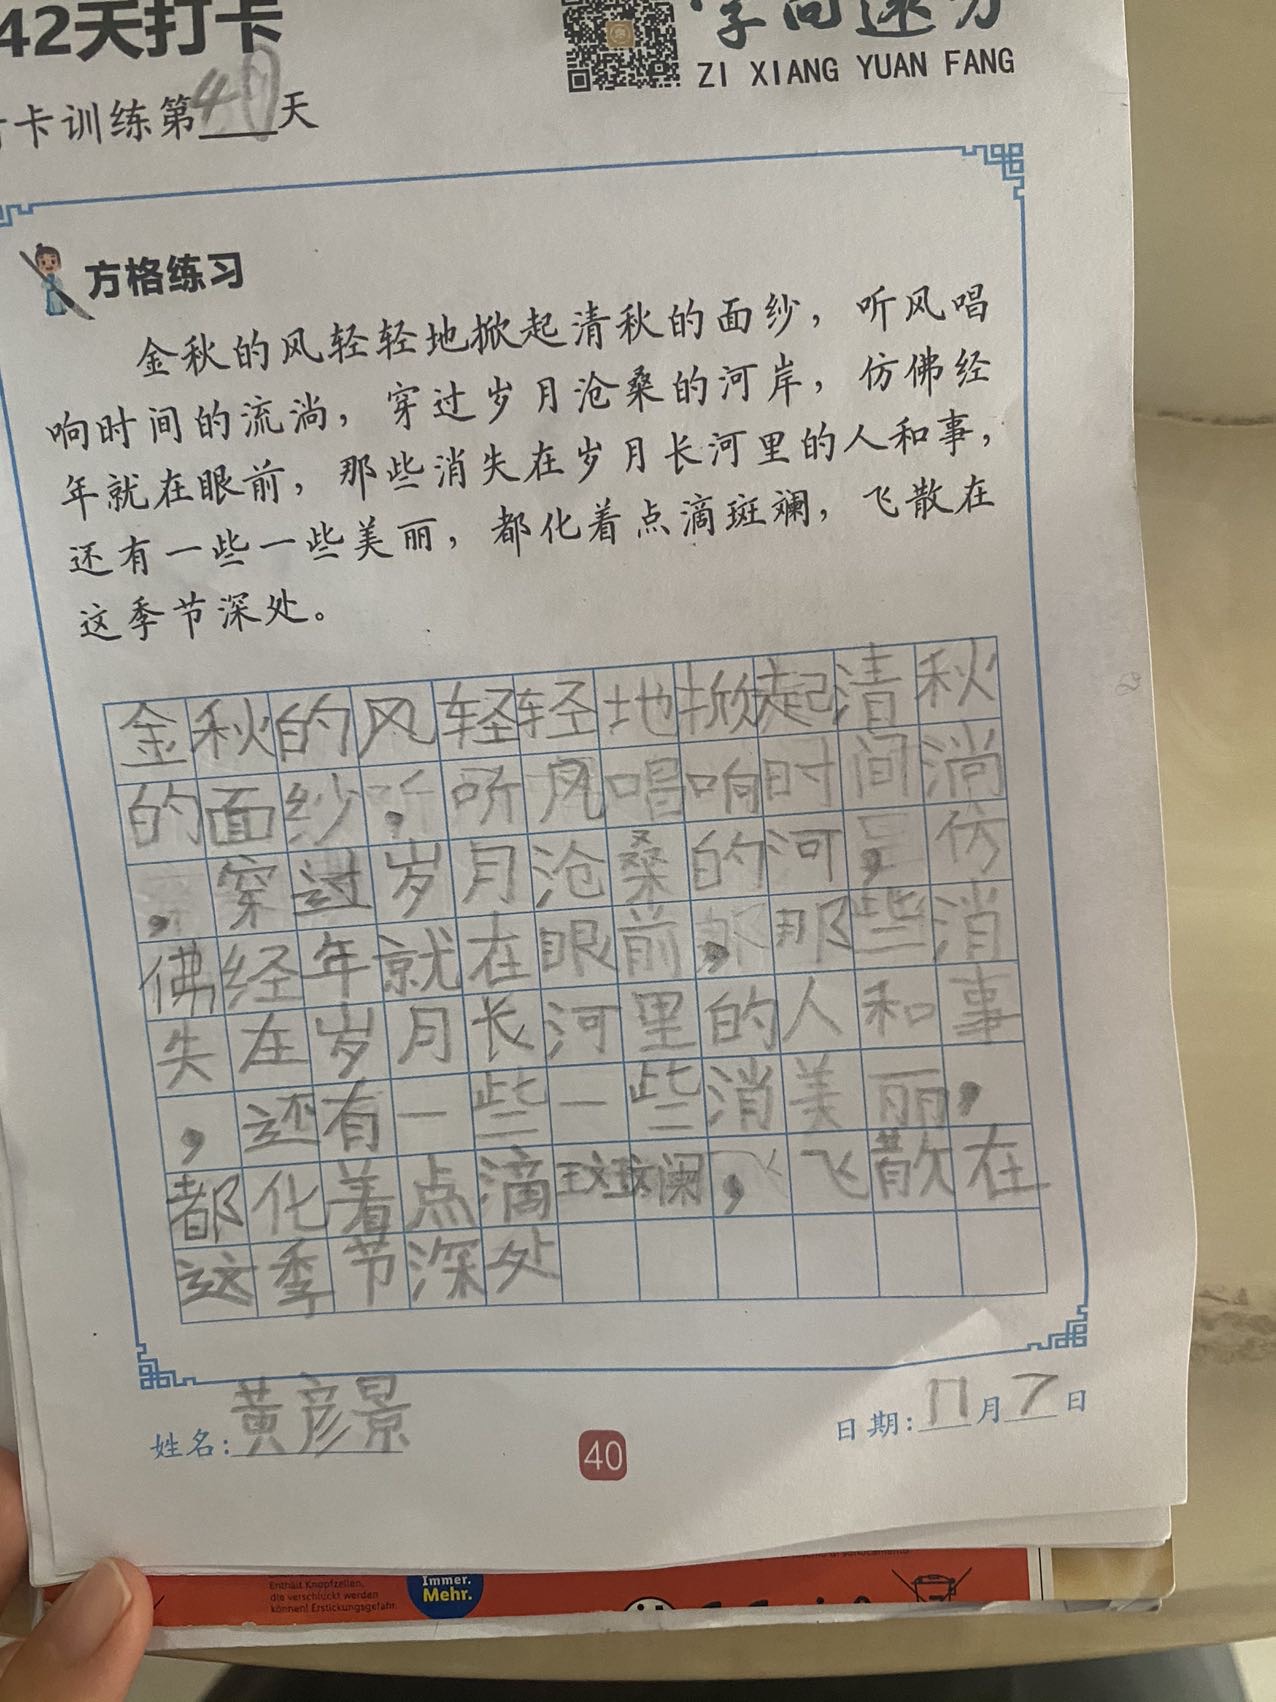 42天打卡
字向远方
ZI XIANG YUAN FANG
卡训练第40天
方格练习
金秋的风轻轻地掀起清秋的面纱，听风唱
响时间的流淌，穿过岁月沧桑的河岸，仿佛经
年就在眼前，那些消失在岁月长河里的人和事，
还有一些一些美丽，都化着点滴斑斓，飞散在
这季节深处。
金秋的风轻轻地掀起清秋
的面纱，听风唱响时间淌
，穿过岁月沧桑的河，仿
佛经年就在眼前，那些消
失在岁月长河里的人和事
，还有一些一些消美丽，
都化着点滴斑斓，飞散在
这季节深处
姓名：黄彦景
40
日期：11月7日
Enthält Knopfzellen,
die verschluckt werden
können! Erstickungsgefahr.
Immer.
Mehr.